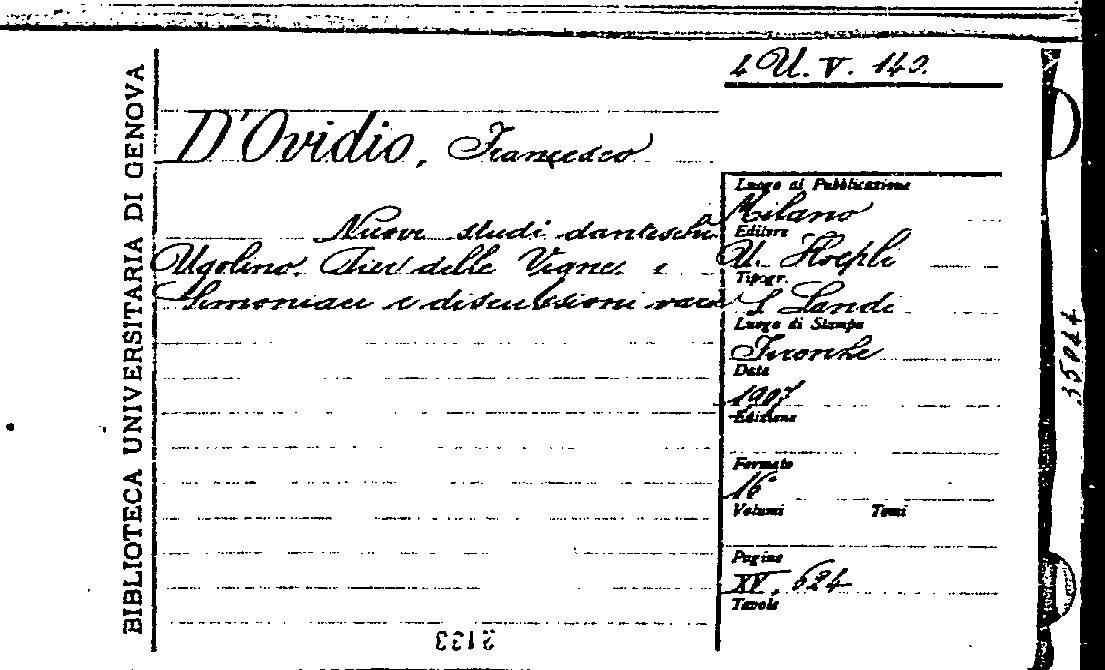 4 U. V. 140.
BIBLIOTECA UNIVERSITARIA DI GENOVA
D'Ovidio, Francesco
Nuovi studi danteschi
Ugolino, Pier delle Vigne, i
Simoniaci e discussioni varie
Luogo di Pubblicazione
Milano
Editore
U. Hoepli
Tipogr.
S Landi
Luogo di Stampa
Firenze
Data
1907
Edizione
Formato
16°
Volumi Tomi
Pagine
XV, 624
Tavole
35044
2133